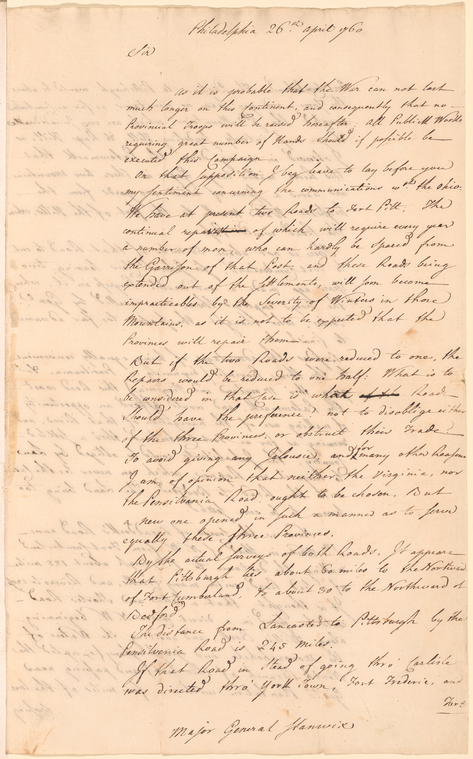 Philadelphia 26th april 1760
Sir
as it is probable that the War can not last
much longer on this Continent, and consequently that no
Provincial Troops will be raised hereafter. all Publick Works
requiring great number of Hands should if possible be
executed this Campaign
On that supposition, I beg leave to lay before you
my sentiment concerning the communications wth the Ohio.
We have at present two Roads to Fort Pitt. The
continual repair of which will require every year
a number of men, who can hardly be spaced from
the Garrison of that Post, and these Roads being
extended out of the settlements, will soon become
impracticable by the severity of Winters in those
Mountains, as it is not to be expected that the
Provinces will repair them
But if the two Roads were reduced to one, the
Repairs would be reduced to one half: What is to
be considered in that case is which Road
should have the preference? not to disoblige either
of the three Provinces, or obstruct their Trade
To avoid giving any Jelousie, and for many other Reasons
I am of opinion that neither the Virginia, nor
the Pensilvania Road ought to be chosen. But
a new one opened in such a manner as to serve
equally these three Provinces.
By the actual surveys of both Roads, It appears
that Pittsburgh lies about 50 miles to the Northward
of Fort Cumberland & about 30 to the Northward of
Bedford
The distance from Lancaster to Pittsburgh by the
Pensilvania Road is 245 miles.
If that Road in stead of going thro' Carlisle
was directed thro' York Town, Fort Frederic, and
Fort
Major General Stanwix